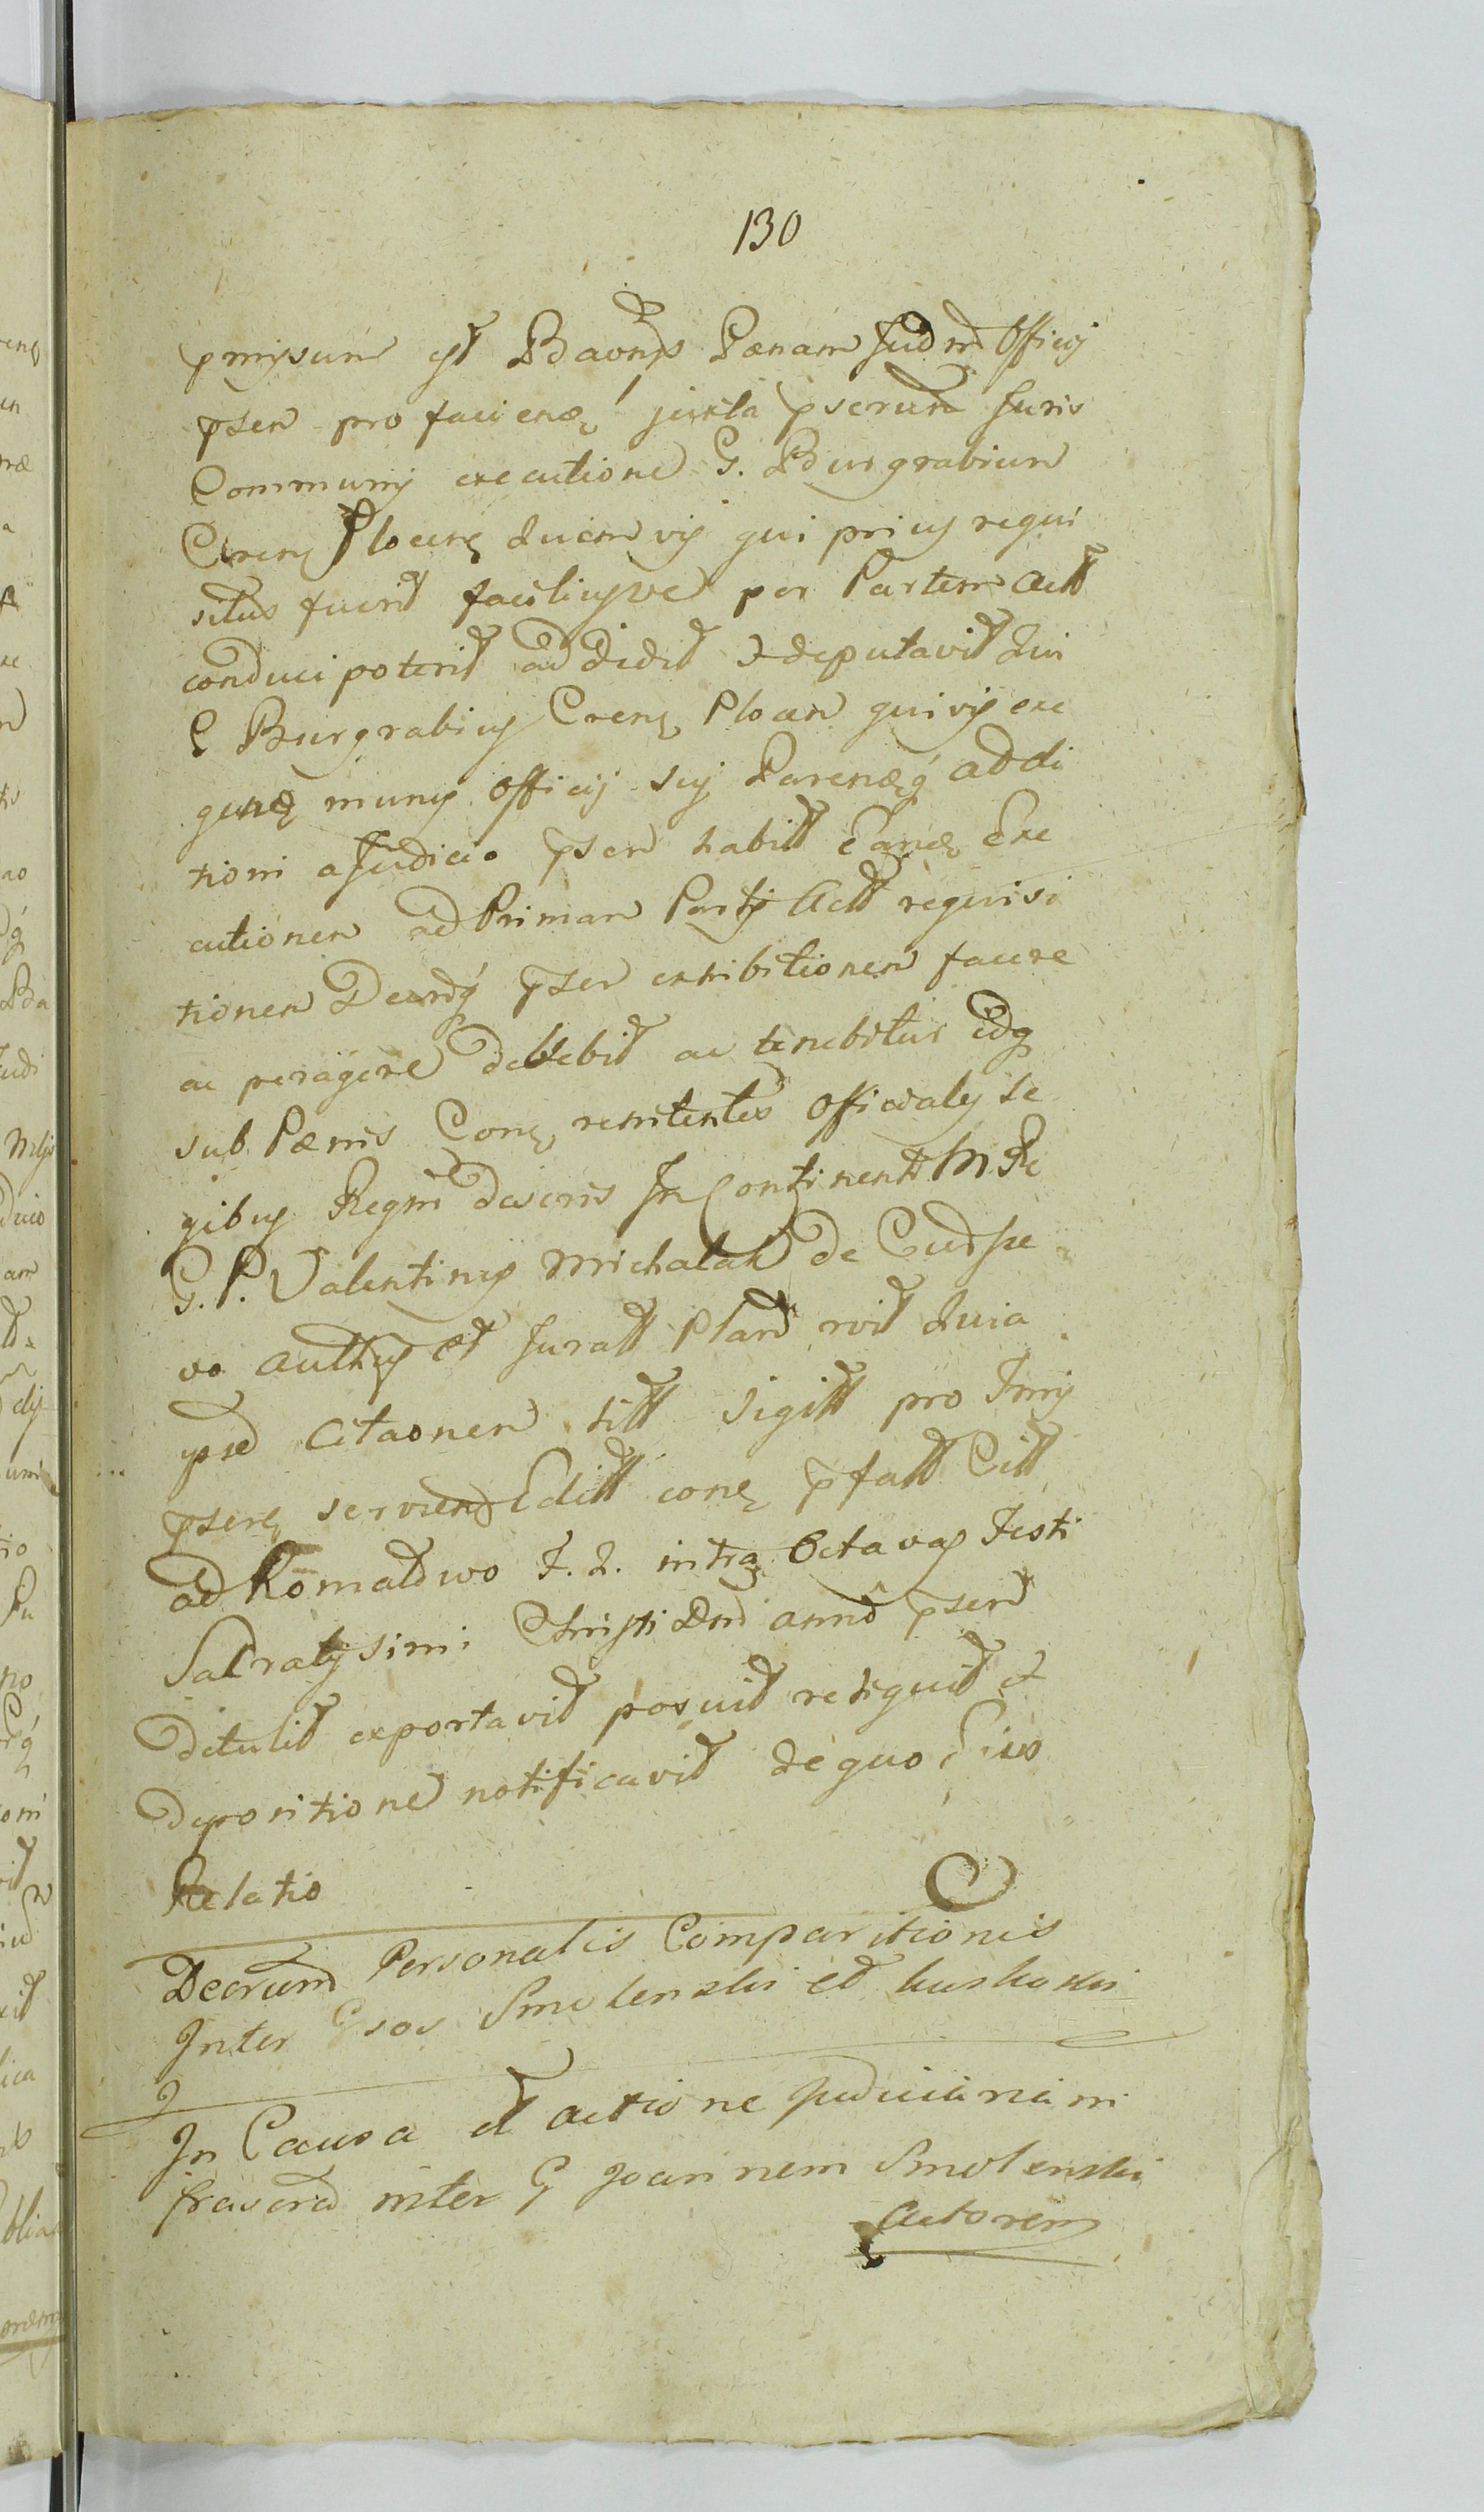 130
pmissum est Baonis Pænam Judm Officij
psen pro faciend juxta pscrum Juris
Communis executione G. Burgrabium
Crens Plocens quemvis qui prius requi
situs fuerit faciliusve per Partem Act
conduci poterit addidit & deputavit Qui
G Burgrabius Crens Plocen quivis exe
quens munus officij sui Parendq addi
tioni a Judicio psen habit Eande Exe
cutionem ad Primam Partis Act requisi
tionem Decrtiq psen exhibitionem facere
ac peragere debebit ac tenebitur idq
sub Pænis Con renitentes Officiales Le
gibus Regni descris In Continenti M Re
G. P. Valentinus Michalak de Cudze
vo authus et Juratt Pland rvit quia
ipse Citaonem litt Sigitt pro Trmi
psens servien Editt cone pfatt Citt
ad Romaldwo F. 2. intra Octavas Festi
Sacratissimi Christi Dni anni psen
detulit exportavit posuit reliquit et
depositione notificavit de quo Suo
Relatio
Decrum Personalis Comparitionis
Inter Gsos Smolenski et
In Causa et actione Judiciaria in
frascra inter G Joannem Smolenski
Actorem